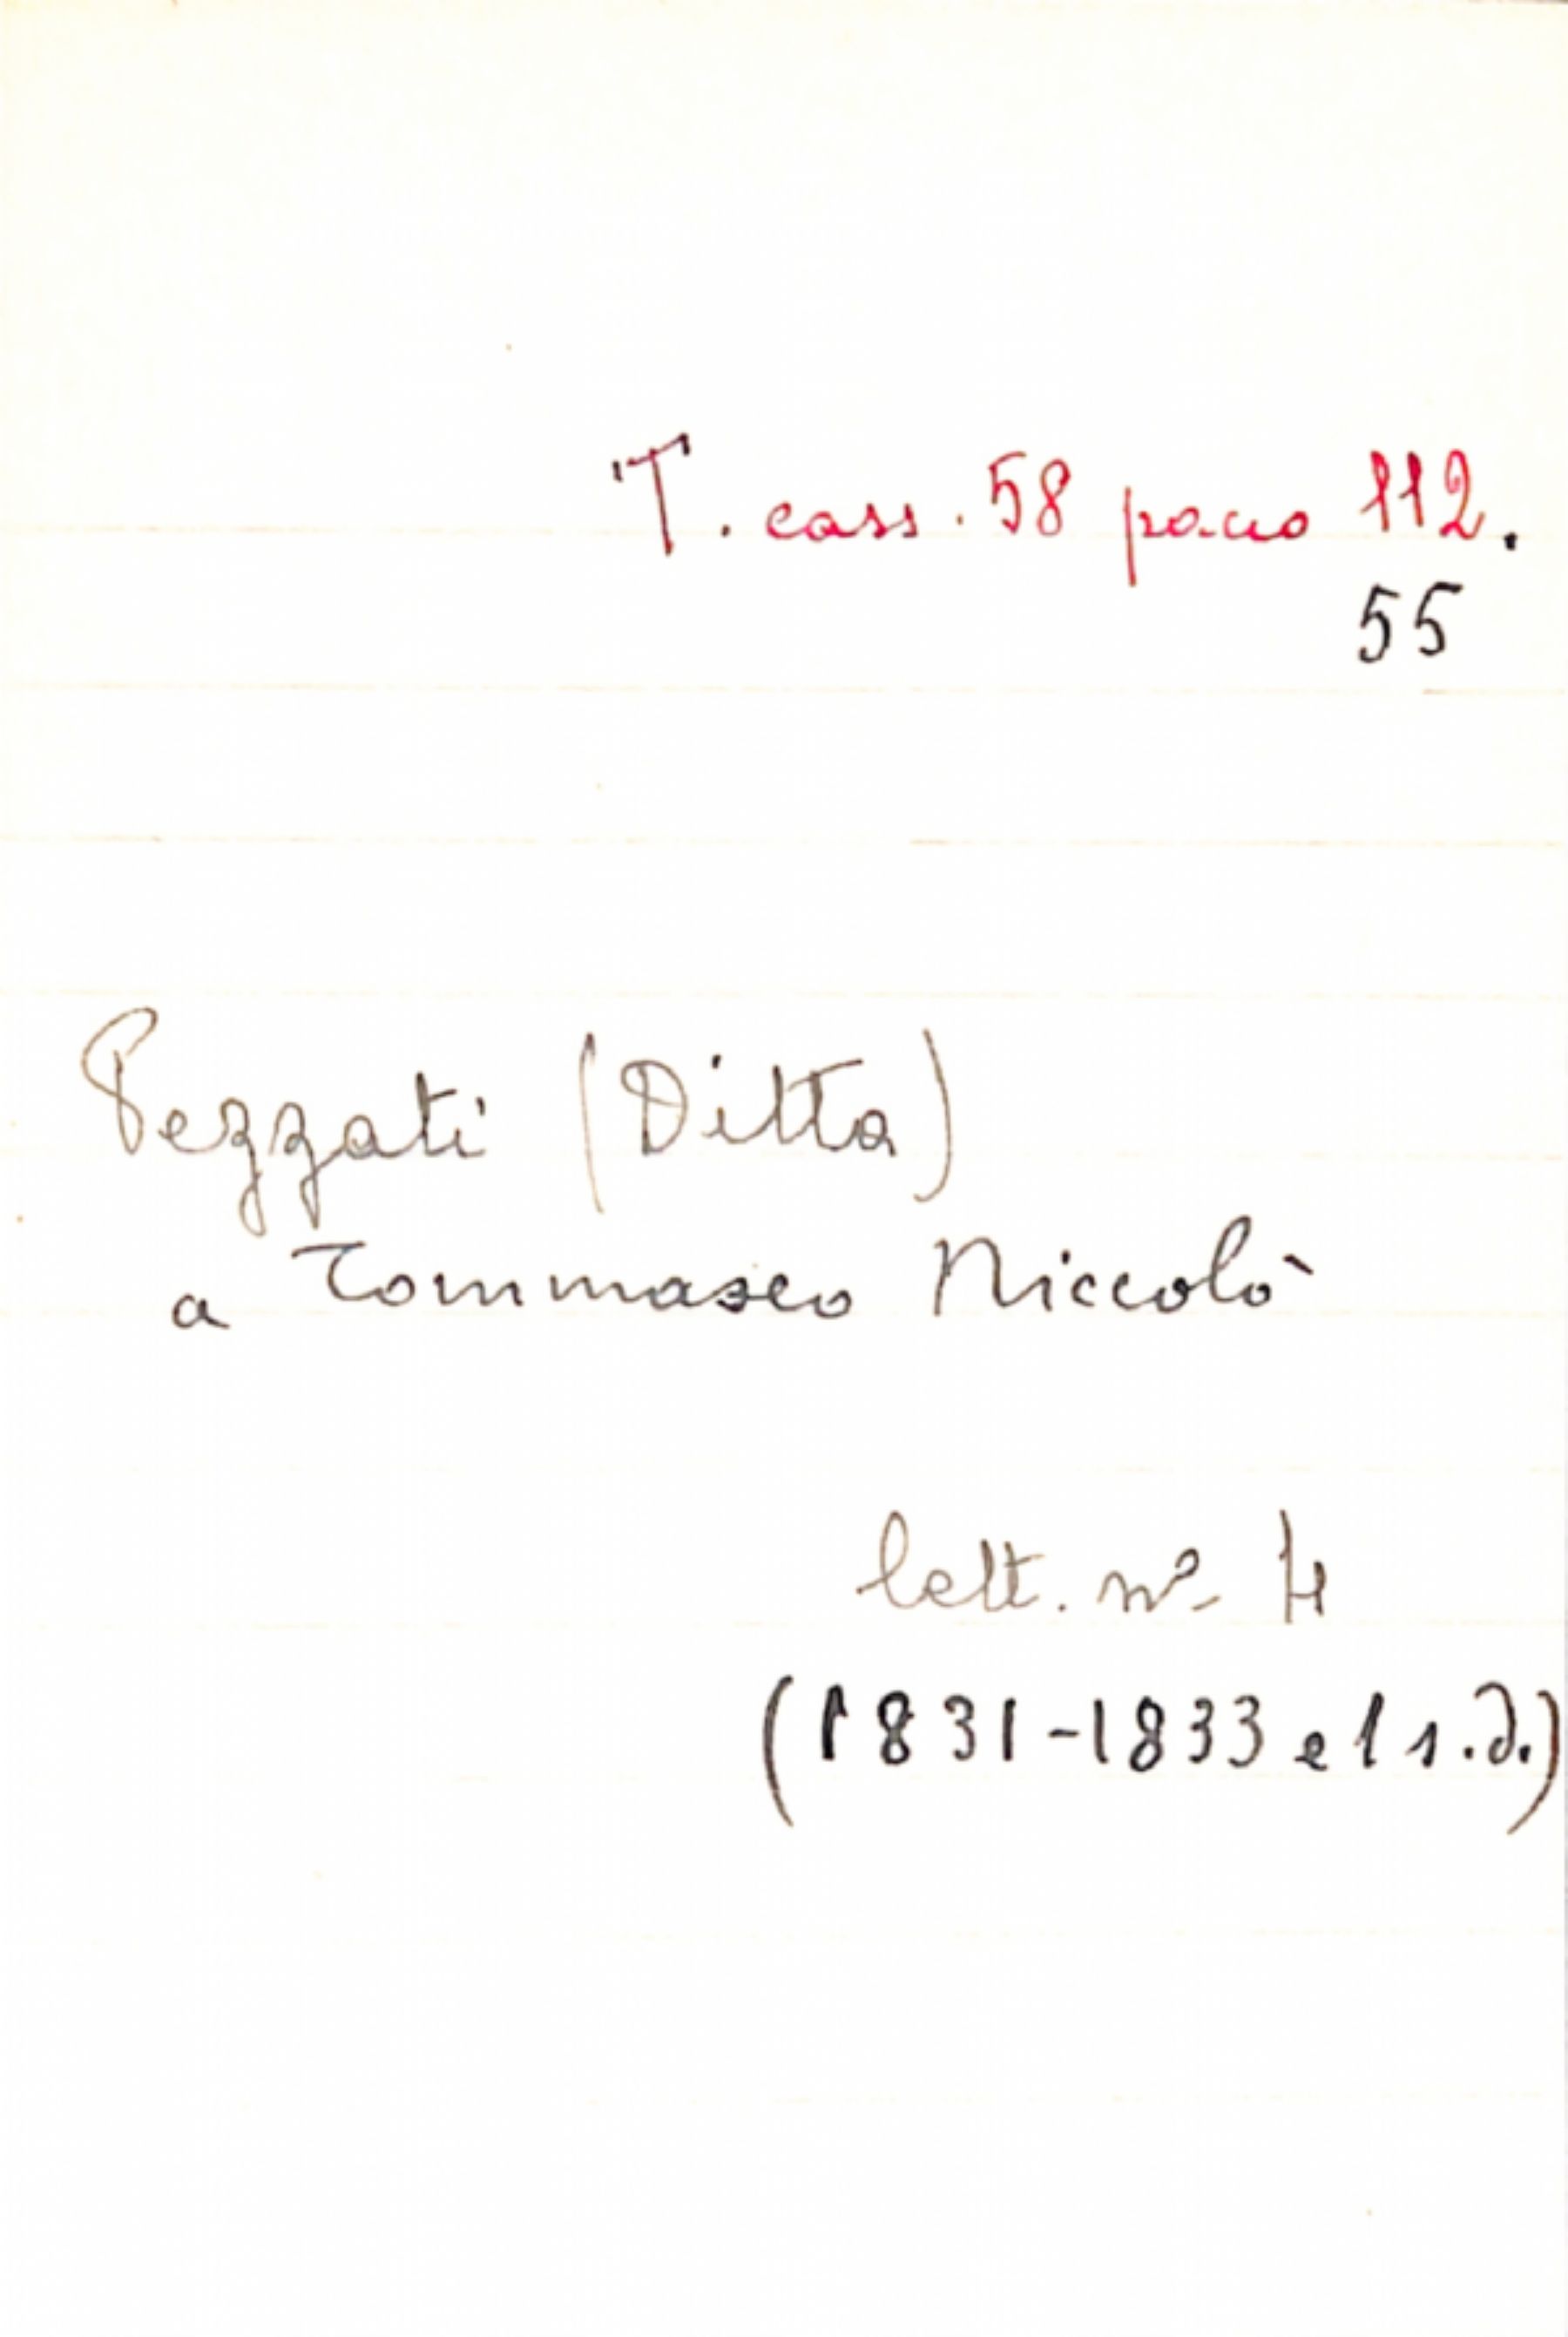 T. cass. 58 pacco 112.
55
Pezzati (Ditta)
a Tommaseo Niccolò
lett. nº 4
(1831-1833 e 1 s.d.)